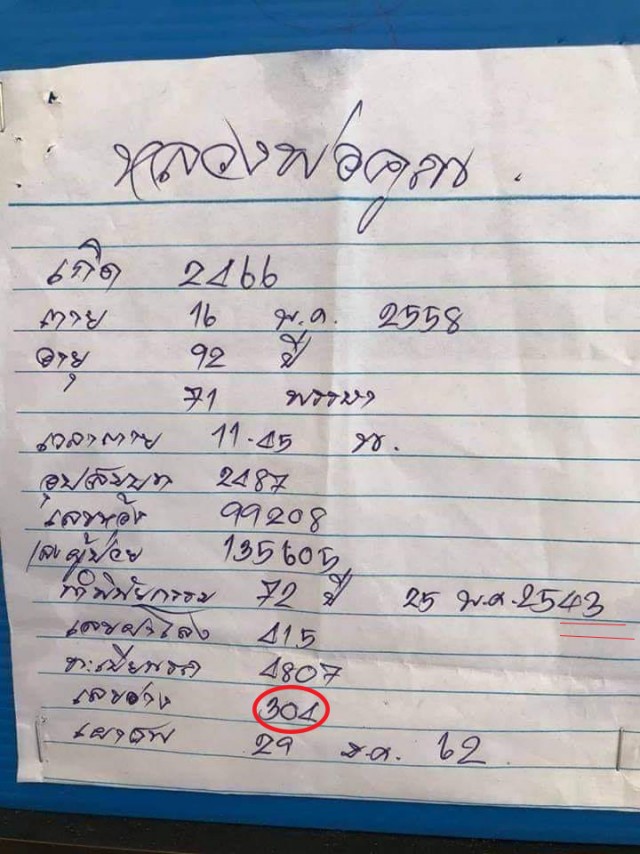 หลวงพ่อคูณ.
เกิด 2466
ตาย 16 พ.ค. 2558
อายุ 92 ปี
71 พรรษา
เวลาตาย 11.45 น.
อุปสมบท 2487
เลขห้อง 99208
เลขผู้ป่วย 135605
ทำพินัยกรรม 72 ปี 25 พ.ค. 2543
เลขฝาโลง 415
ทะเบียนรถ 4807
เลขร่าง 304
เผาศพ 29 ม.ค. 62